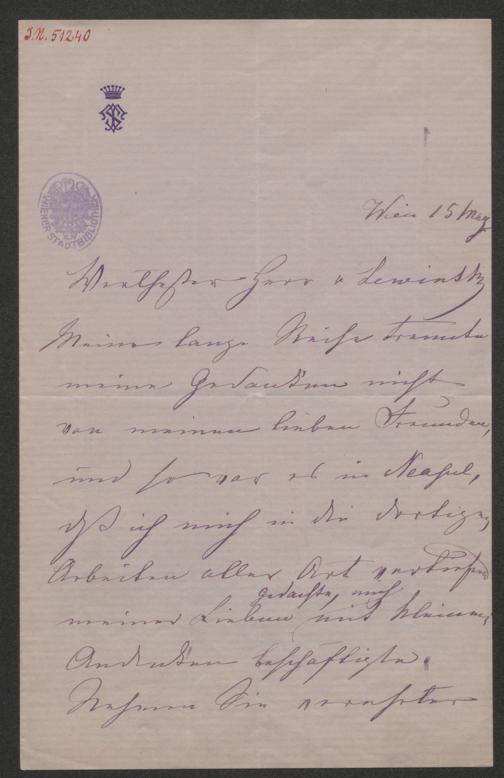 I.N. 51240
WIENER STADTBIBLIOTHEK
Wien 15 May
Werthester Herr v Lewinsky
Meine lange Reise trennte
meine Gedanken nicht
von meinen lieben Freunden,
und so war es in Neapel,
daß ich mich in die dortigen
Arbeiten aller Art vertiefend
gedachte, mich
meiner Lieben mit kleinen
Andenken beschäftigte.
Nehmen Sie verehrter